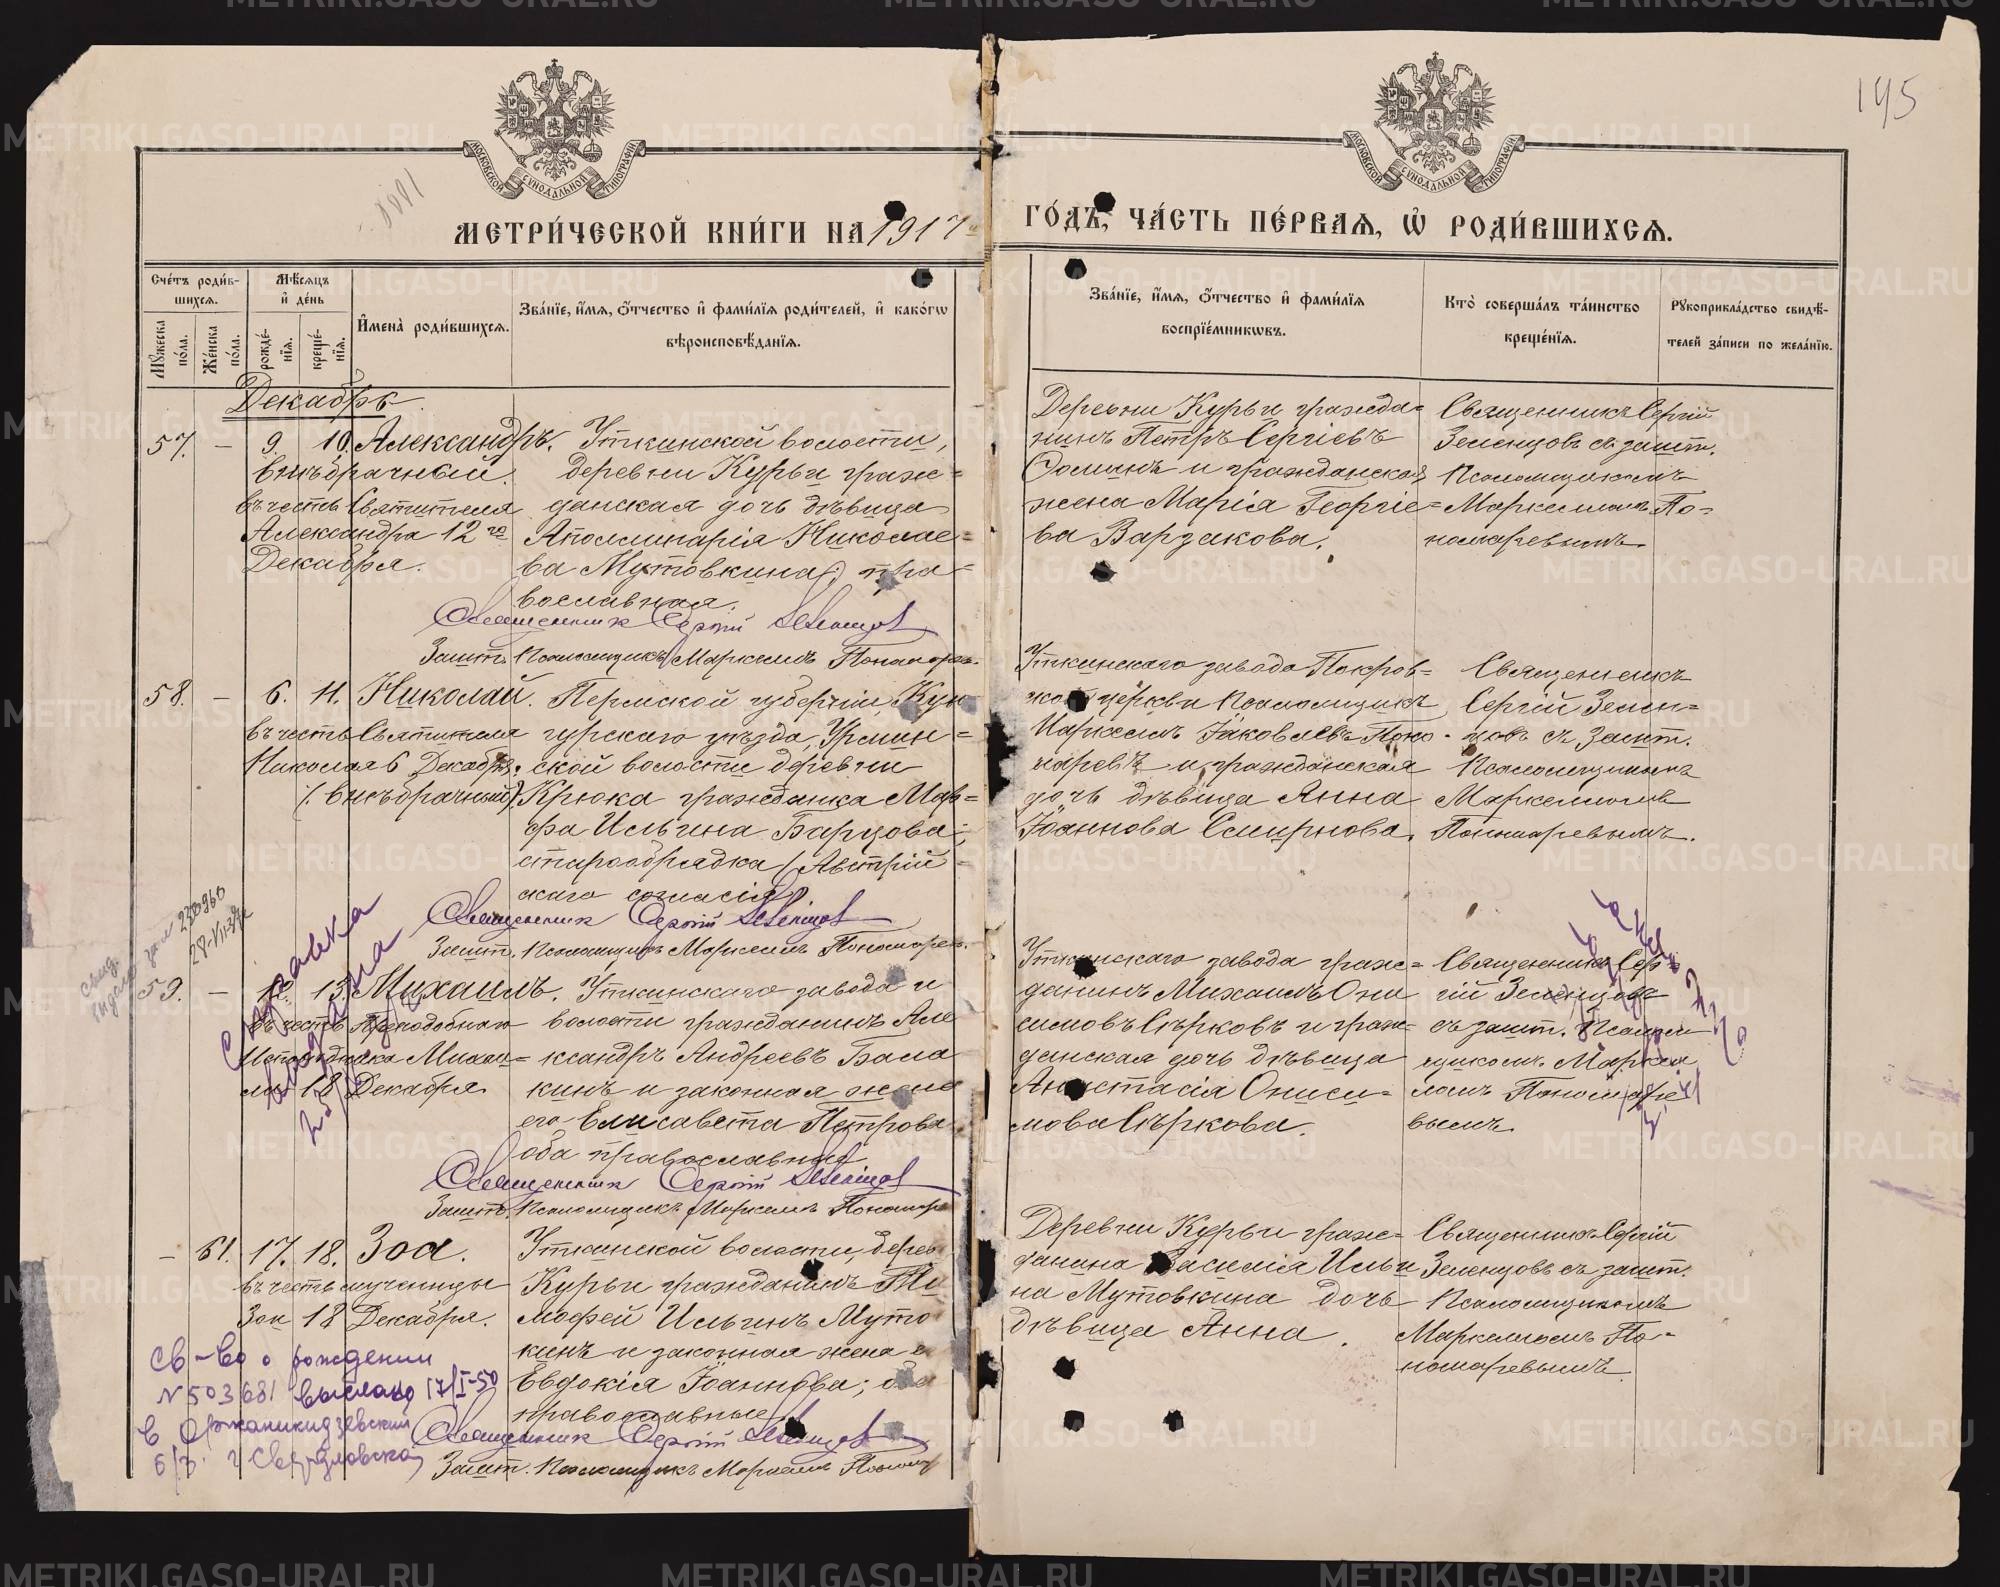 195
1881
МЕТРИ́ЧЕСКОЙ КНИ́ГИ НА 1917 й
ГО́ДЪ, ЧА́СТЬ ПЕ́РВАЯ, Ѽ РОДИ́ВШИХСЯ.
Сче́тъ роди́в-
шихся.
Мꙋжеска по́ла.
Же́нска по́ла.
Мѣ́сяцъ
и́ де́нь
рожде́-
нїя.
креще́-
нїя.
Имена̀ роди́вшихся.
Зва́нїе, и́мя, ѻ́тчество и҆ фами́лїя роди́телей, и҆ како́гѡ
вѣроисповѣ́данїя.
Зва́нїе, и́мя, ѻ́тчество и҆ фами́лїя
воспрїе́мникѡвъ.
Кто̀ соверша́лъ та́инство
креще́нїя.
Рꙋкоприкла́дство свидѣ́-
телей за́писи по жела́нїю.
Декабрь
57. – 9. 10. Александръ.
внѣбрачный.
въ честь Святителя
Александра 12 го
Декабря.
Уткинской волости,
деревни Курьи граж-
данская дочь дѣвица
Аполлинарія Николае-
ва Мутовкина, пра-
вославная.
Священник Сергій Зеленцов
Зашт. Псаломщикъ Маркеллъ Пономаревъ.
Деревни Курьи гражда-
нинъ Петръ Сергіевъ
и гражданская
жена Марія Георгіе-
ва Варзакова.
Священникъ Сергій
Зеленцовъ съ зашт.
Псаломщикомъ
Маркелломъ По-
номаревымъ.
58. – 6. 11. Николай.
въ честь Святителя
Николая 6 Декабря.
(внѣбрачный)
Пермской губерніи, Кун-
гурскаго уѣзда, Урмин-
ской волости деревни
Крюка гражданка Мар-
фа Ильина Барцова;
старообрядка (Австрій-
скаго согласія)
Священник Сергій Зеленцов
Зашт. Псаломщикъ Маркеллъ Пономаревъ.
Уткинскаго завода Покров-
ской церкви Псаломщикъ
Маркеллъ Іаковлевъ Поно-
маревъ и гражданская
дочь дѣвица Анна
Іоаннова Смирнова.
Священникъ
Сергій Зелен-
цовъ съ Зашт.
Псаломщикомъ
Маркелломъ
Пономаревымъ.
свид.
выдано за № 230960
справка
выдана
59. – 12. 13. Михаилъ.
въ честь Преподобнаго
Исповѣдника Михаи-
ла 18 Декабря.
Уткинскаго завода и
волости гражданинъ Але
ксандръ Андреевъ Бала
кинъ и законная жена
его Елисавета Петрова
оба православные
Священник Сергій Зеленцов
Зашт. Псаломщикъ Маркеллъ Пономаре
Уткинскаго завода граж-
данинъ Михаилъ Они
симовъ Сѣрковъ и граж-
данская дочь дѣвица
Анастасія Ониси-
мова Сѣркова.
Священникъ Сер-
гій Зеленцовъ
съ зашт. Псалом
щикомъ Маркел
ломъ Пономаре
вымъ.
– 61. 17. 18. Зоа.
въ честь мученицы
Зои 18 Декабря.
Уткинской волости, дерев
Курьи гражданинъ Ти
мофей Ильинъ Муто
кинъ и законная жена е
Евдокія Іоаннова; оба
православные.
Священник Сергій Зеленцов
Зашт. Псаломщикъ Маркеллъ Поном
Деревни Курьи граж-
данина Василія Ильи
на Мутовкина дочь
дѣвица Анна.
Священникъ Сергій
Зеленцовъ съ зашт.
Псаломщикомъ
Маркелломъ По-
номаревымъ.
св-во о рождении
N 503681 выслано 17/I-50
в Орджоникидзевский
б/з. г Свердловска